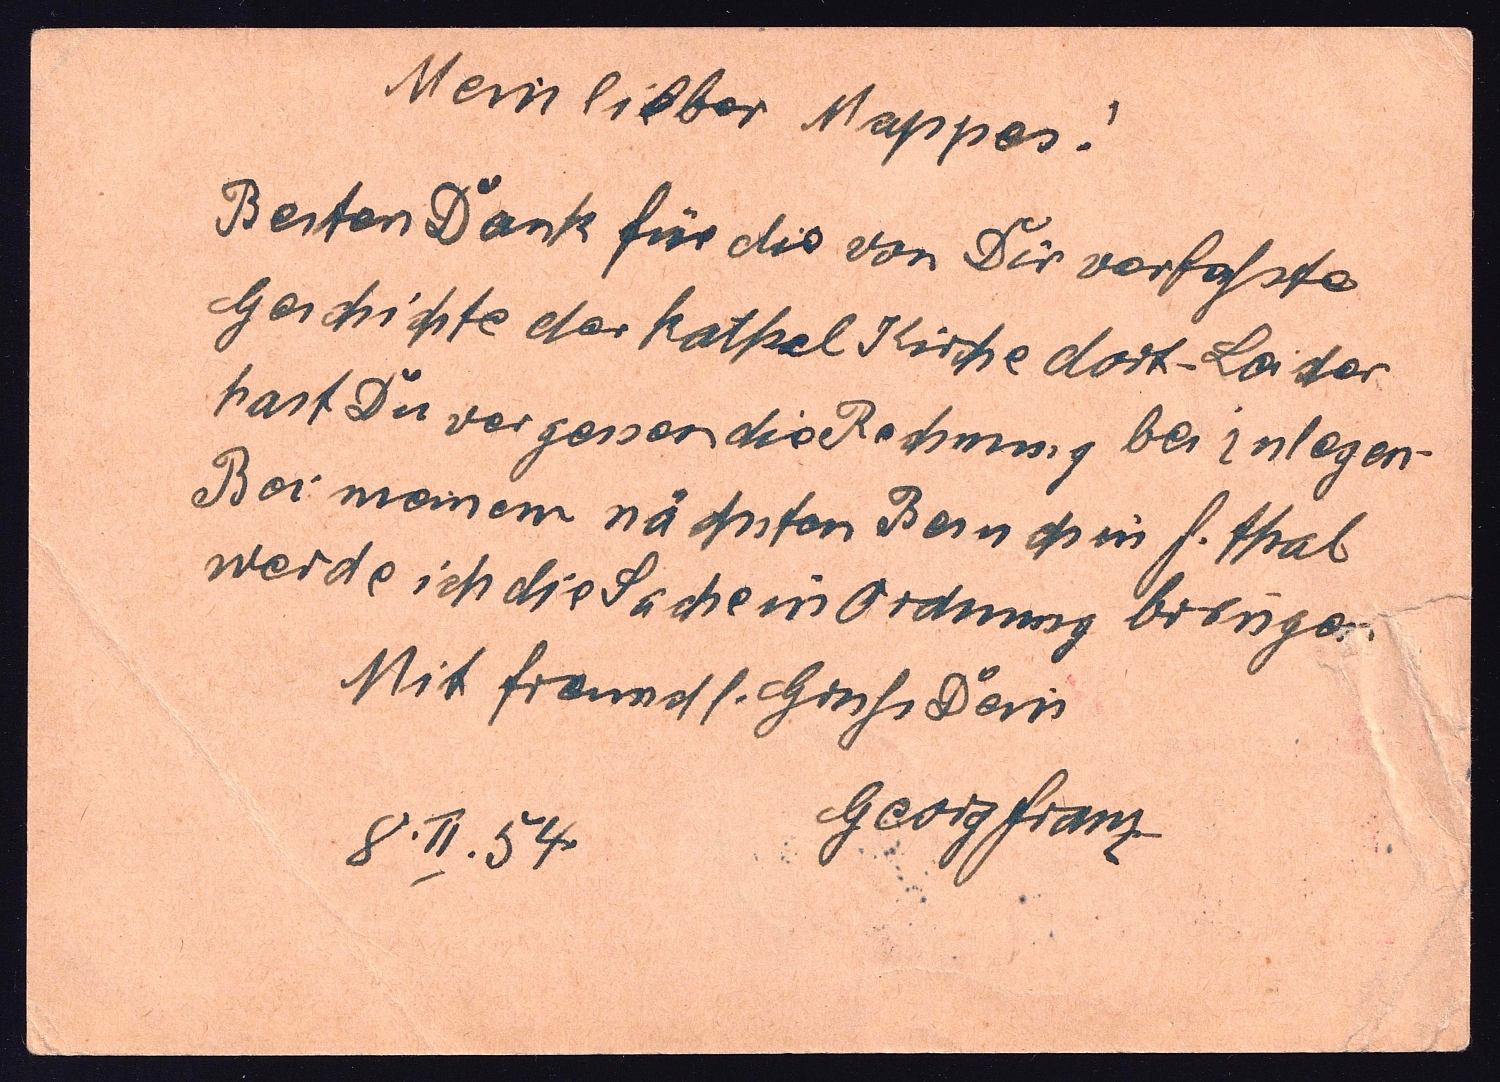 Mein lieber Mappes!
Besten Dank für die von Dir verfaßste
Geschichte der kathol Kirche dort - Leider
hast Du vergessen die Rechnung beizulegen -
Bei meinem nächsten Besuch in f. thal
werde ich die Sache in Ordnung bringen.
Mit freundl. Gruß Dein
Georg Franz
8. II. 54.